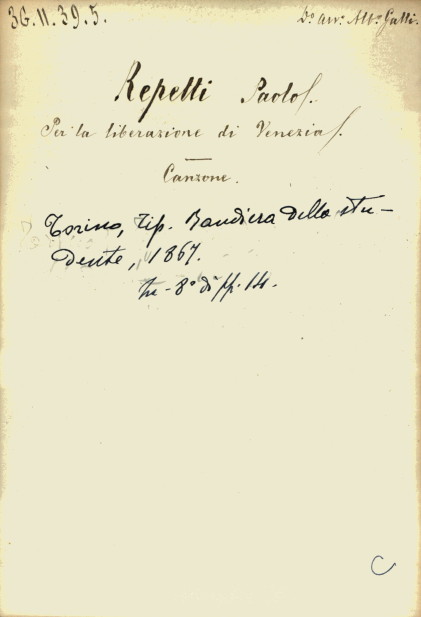 3G.II.39.5.
D.º avv. Alb.º Gatti.
Repetti Paolo.
Per la liberazione di Venezia.
Canzone.
Torino, tip. Bandiera dello stu-
dente, 1867.
in-8º di pp. 14.
C